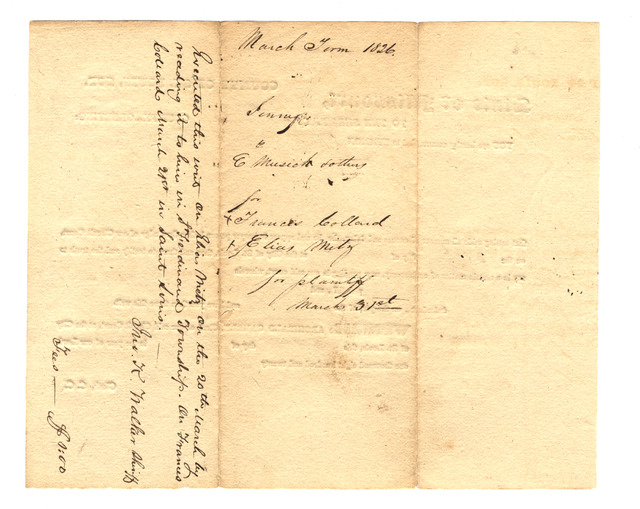 March Term 1826
Jenny
vs
E Musick & others
for
+ Frances Collard
+ Elias Metz
for plaintiff
March 31st
Executed this writ on Elias Metz on the 20th March by
reading it to him in St Ferdinand Township. On Frances
Collard March 21st in Saint Louis.
Jno. K. Walker Shiff
Fees — $2:00